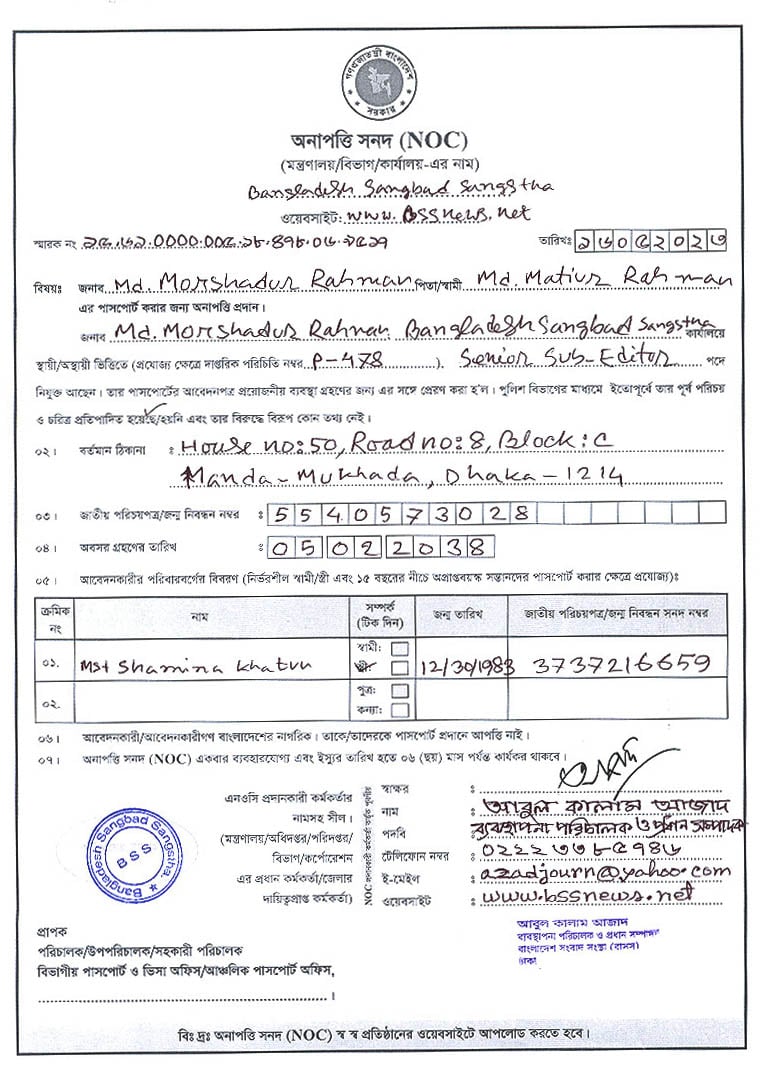 গণপ্রজাতন্ত্রী বাংলাদেশ
সরকার
অনাপত্তি সনদ (NOC)
(মন্ত্রণালয়/বিভাগ/কার্যালয়-এর নাম)
Bangladesh Sangbad Sangstha
ওয়েবসাইট: www.bssnews.net
স্মারক নং
তারিখঃ ১৬০৫২০২৩
বিষয়ঃ জনাব Md. Morshadur Rahman পিতা/স্বামী Md. Matiur Rahman
এর পাসপোর্ট করার জন্য অনাপত্তি প্রদান।
জনাব Md. Morshadur Rahman Bangladesh Sangbad Sangstha কার্যালয়ে
স্থায়ী/অস্থায়ী ভিত্তিতে (প্রযোজ্য ক্ষেত্রে দাপ্তরিক পরিচিতি নম্বর P-478 ). Senior Sub-Editor পদে
নিযুক্ত আছেন। তার পাসপোর্টের আবেদনপত্র প্রয়োজনীয় ব্যবস্থা গ্রহণের জন্য এর সঙ্গে প্রেরণ করা হ'ল। পুলিশ বিভাগের মাধ্যমে ইতোপূর্বে তার পূর্ব পরিচয়
ও চরিত্র প্রতিপাদিত হয়েছে/হয়নি এবং তার বিরুদ্ধে বিরূপ কোন তথ্য নেই।
০২। বর্তমান ঠিকানা : House no: 50, Road no: 8, Block: C
Manda-Mukhada, Dhaka-1214
০৩। জাতীয় পরিচয়পত্র/জন্ম নিবন্ধন নম্বর : 5540573028
০৪। অবসর গ্রহণের তারিখ : 05022038
০৫। আবেদনকারীর পরিবারবর্গের বিবরণ (নির্ভরশীল স্বামী/স্ত্রী এবং ১৫ বছরের নীচে অপ্রাপ্তবয়স্ক সন্তানদের পাসপোর্ট করার ক্ষেত্রে প্রযোজ্য)ঃ
ক্রমিক নং নাম সম্পর্ক (টিক দিন) জন্ম তারিখ জাতীয় পরিচয়পত্র/জন্ম নিবন্ধন সনদ নম্বর
০১. Mst Shamina Khatun স্বামী: স্ত্রী: 12/30/1983 3737216659
০২. পুত্র: কন্যা:
০৬। আবেদনকারী/আবেদনকারীগণ বাংলাদেশের নাগরিক। তাকে/তাদেরকে পাসপোর্ট প্রদানে আপত্তি নাই।
০৭। অনাপত্তি সনদ (NOC) একবার ব্যবহারযোগ্য এবং ইস্যুর তারিখ হতে ০৬ (ছয়) মাস পর্যন্ত কার্যকর থাকবে।
এনওসি প্রদানকারী কর্মকর্তার
নামসহ সীল।
(মন্ত্রণালয়/অধিদপ্তর/পরিদপ্তর/
বিভাগ/কর্পোরেশন
এর প্রধান কর্মকর্তা/জেলার
দায়িত্বপ্রাপ্ত কর্মকর্তা)
স্বাক্ষর :
নাম : আবুল কালাম আজাদ
পদবি : ব্যবস্থাপনা পরিচালক ও প্রধান সম্পাদক
টেলিফোন নম্বর : ০২২২৩৩৮৫৭৪৬
ই-মেইল : azadjourn@yahoo.com
ওয়েবসাইট : www.bssnews.net
Bangladesh Sangbad Sangstha.
BSS
আবুল কালাম আজাদ
ব্যবস্থাপনা পরিচালক ও প্রধান সম্পাদক
বাংলাদেশ সংবাদ সংস্থা (বাসস)
ঢাকা
প্রাপক
পরিচালক/উপপরিচালক/সহকারী পরিচালক
বিভাগীয় পাসপোর্ট ও ভিসা অফিস/আঞ্চলিক পাসপোর্ট অফিস,
বিঃ দ্রঃ অনাপত্তি সনদ (NOC) স্ব স্ব প্রতিষ্ঠানের ওয়েবসাইটে আপলোড করতে হবে।